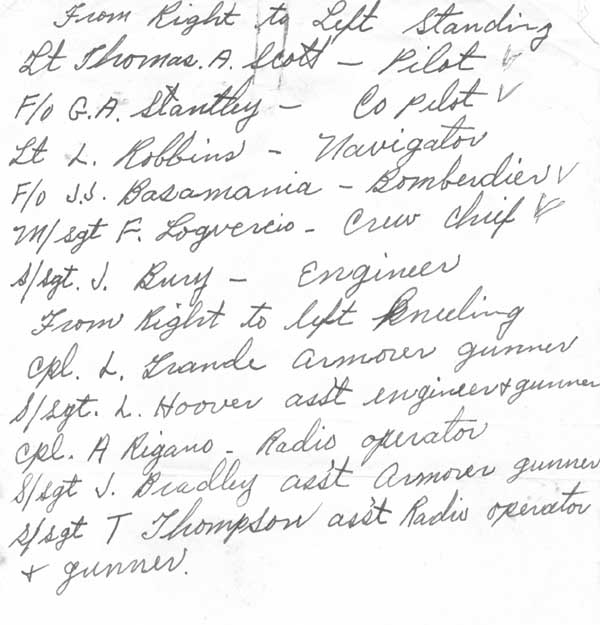 From Right to Left Standing
Lt Thomas. A. Scott - Pilot ✓
F/o G.A. Stantley - Co Pilot ✓
Lt L. Robbins - Navigator
F/o J.J. Basamania - Bomberdier ✓
M/sgt F. Logvercio - Crew Chief ✓
S/sgt. J. Bury - Engineer
From Right to left Kneeling
Cpl. L. Grande Armorer gunner
S/sgt. L. Hoover ass't engineer & gunner
Cpl. A Rigano - Radio operator
S/sgt J. Bradley ass't Armorer gunner
S/sgt T Thompson ass't Radio operator
& gunner.